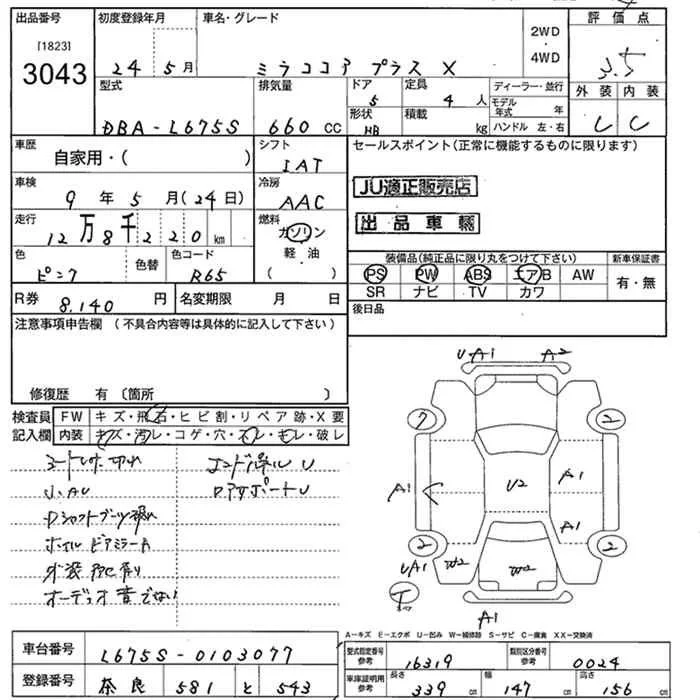 出品番号 初度登録年月 車名・グレード 2WD・4WD 評価点
[1823]
3043 24 5月 ミラココア プラス X 3.5
型式 排気量 ドア 5 定員 4人 ディーラー・並行 外装 内装
DBA-L675S 660cc 形状 HB 積載 kg モデル年式 年 ハンドル 左・右 C C
車歴 自家用・( ) シフト IAT セールスポイント(正常に機能するものに限ります)
車検 9年 5月(24日) 冷房 AAC JU適正販売店
走行 12万8千220km 燃料 ガソリン 軽油 ( ) 出品車輛
色 ピンク 色替 色コード R65 装備品(純正品に限り丸をつけて下さい) 新車保証書
PS PW ABS エアB AW 有・無
SR ナビ TV カワ
R券 8.140円 名変期限 月 日 後日品
注意事項申告欄(不具合内容等は具体的に記入して下さい)
修復歴 有 〔箇所 〕
検査員 FW キズ・飛石・ヒビ割・リペア跡・X要
記入欄 内装 キズ・汚レ・コゲ・穴・スレ・モレ・破レ
シートレザー切れ エンドパネルU
小、AU ロアサポートU
Dシャフトブーツ破れ
ホイル ドアミラーA
外装
オーディオ音でない
U・A1 A2
7 2
A1 U2 A1
A1
2 2
UA1 W2 W2
A1
A-キズ E-エクボ U-凹み W-補修跡 S-サビ C-腐食 XX-交換済
車台番号 L675S-0103077 型式指定番号 参考 16319 類別区分番号 参考 0024
登録番号 奈良 581 と 543 車庫証明用 参考 長さ 339cm 幅 147cm 高さ 156cm